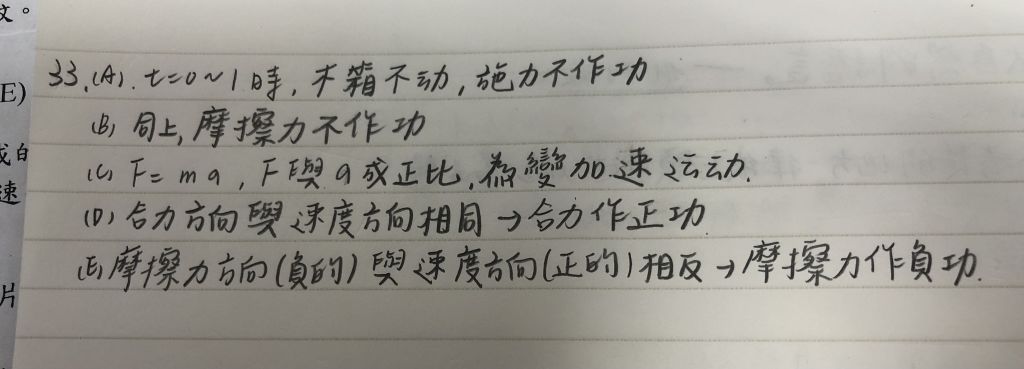 文。
E)
成的
速
片
33.(A). t=0~1時, 木箱不动, 施力不作功
(B) 同上, 摩擦力不作功
(C) F=ma, F與a成正比, 為變加速运动.
(D) 合力方向與速度方向相同→合力作正功
(E) 摩擦力方向(負的)與速度方向(正的)相反→摩擦力作負功.